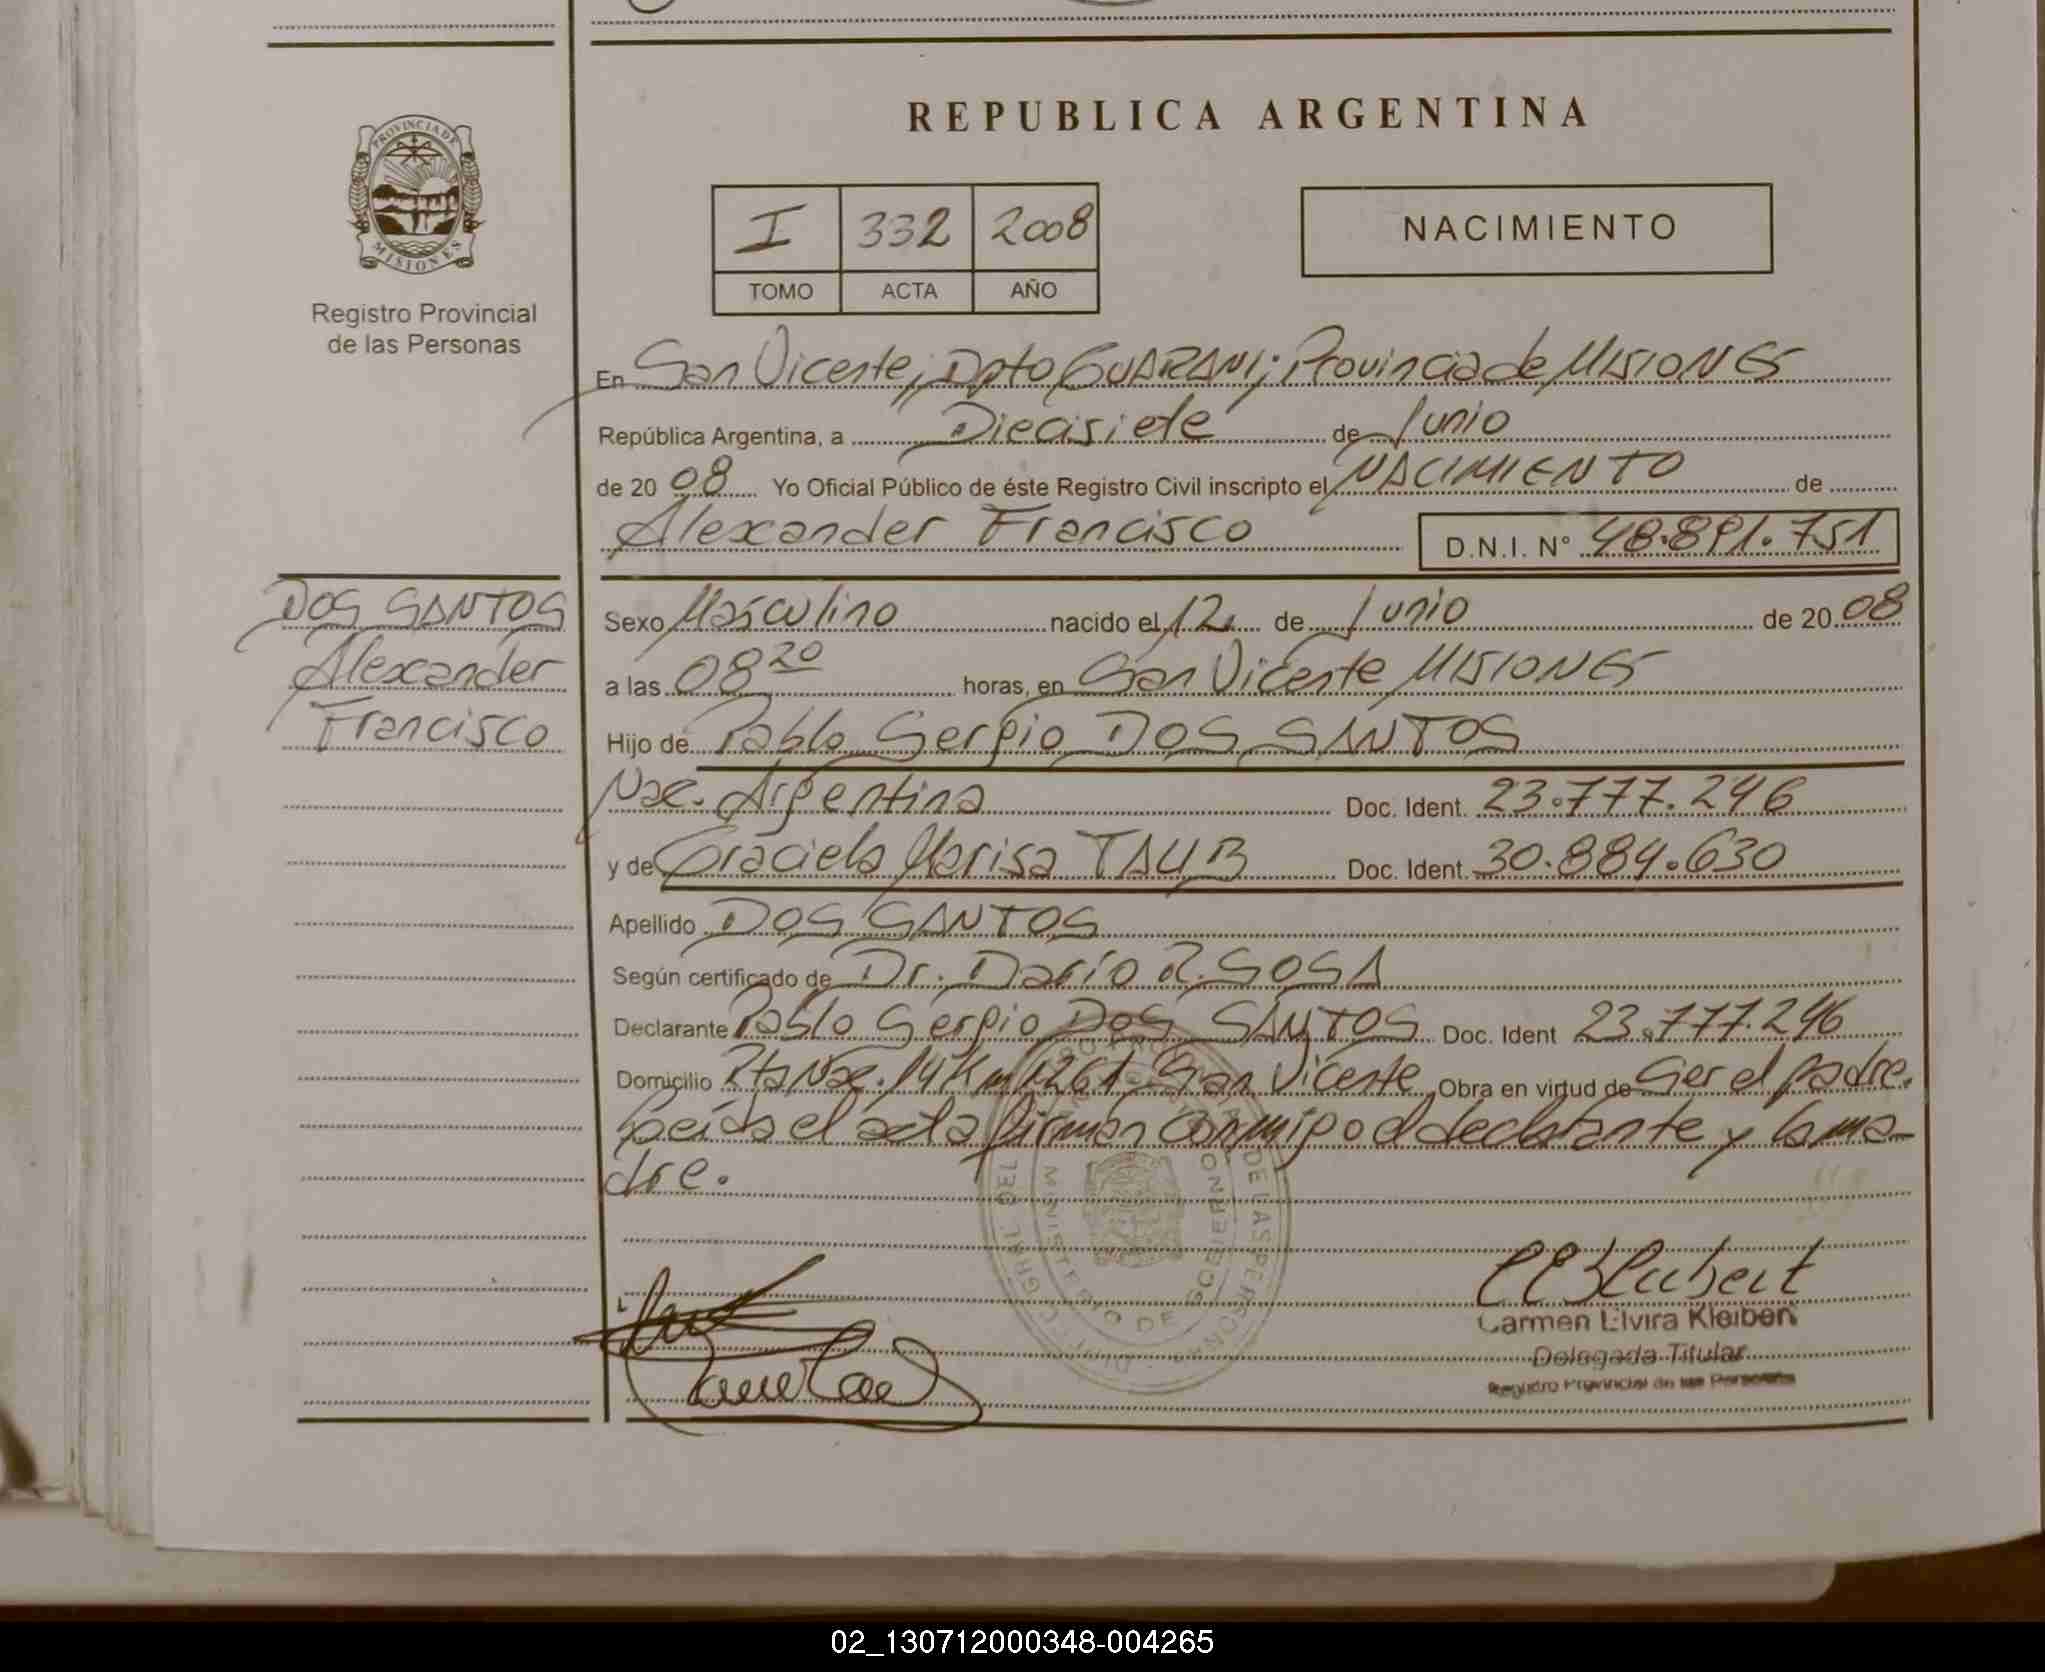 REPUBLICA ARGENTINA
PROVINCIA DE
MISIONES
Registro Provincial
de las Personas
I 332 2008
TOMO ACTA AÑO
NACIMIENTO
En San Vicente; Dpto GUARANI; Provincia de MISIONES
República Argentina, a Diecisiete de Junio
de 20 08 Yo Oficial Público de éste Registro Civil inscripto el NACIMIENTO de
Alexander Francisco D.N.I. N° 48.891.751
DOS SANTOS
Alexander
Francisco
Sexo Masculino nacido el 12 de Junio de 20 08
a las 08 20 horas, en San Vicente MISIONES
Hijo de Pablo Sergio DOS SANTOS
Nac. Argentina Doc. Ident. 23.777.246
y de Graciela Marisa TAUB Doc. Ident. 30.884.630
Apellido DOS SANTOS
Según certificado de Dr. Darío R. SOSA
Declarante Pablo Sergio DOS SANTOS Doc. Ident 23.777.246
Domicilio Rta Nac. 14 Km 1261 San Vicente Obra en virtud de Ser el padre.
Leída el acta firman conmigo el declarante y la ma-
dre.
MINISTERIO DE GOBIERNO
DE LAS PERSONAS
Carmen Elvira Kleiben
Delegada Titular
Registro Provincial de las Personas
02_130712000348-004265